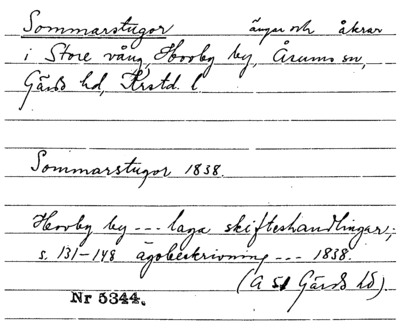 Sommarstugor ängar och åkrar
i Store vång, Hovby by, Åsums sn,
Gärds hd, Krstd. l.
Sommarstugor 1838.
Hovby by --- laga skifteshandlingar;
s. 131-148 ägobeskrivning --- 1838.
(A 51 Gärds hd).
Nr 5344.